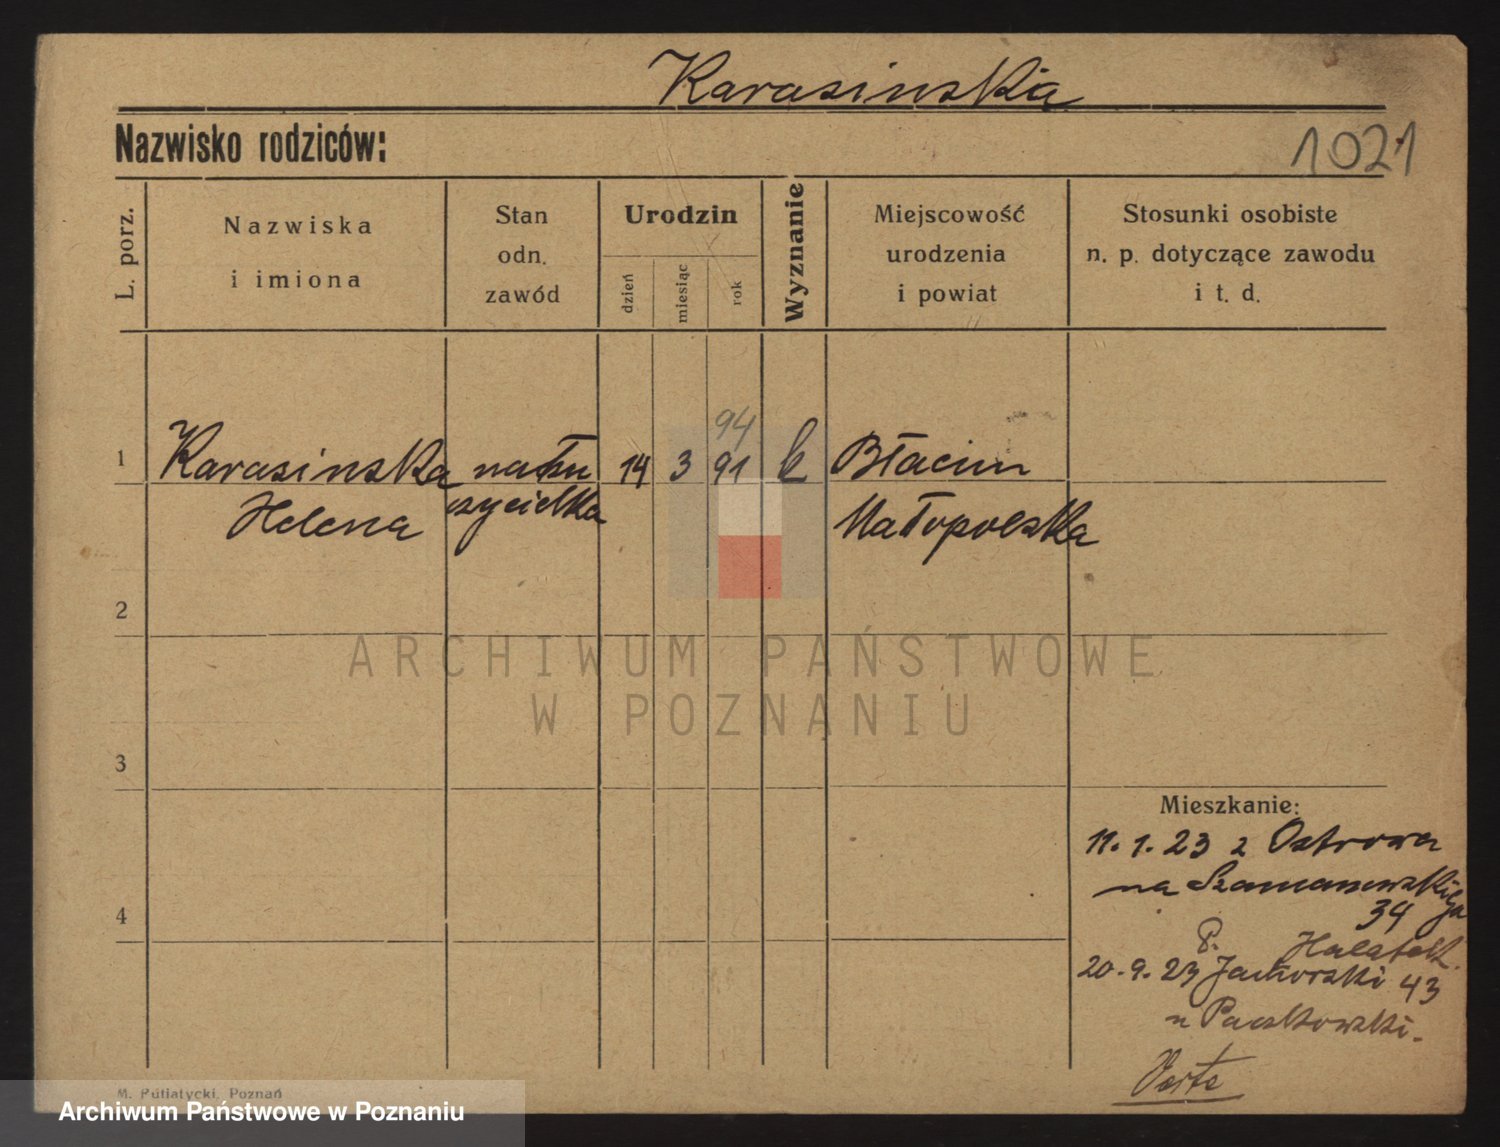 Karasinska
Nazwisko rodziców:
1021
L. porz.
Nazwiska
i imiona
Stan
odn.
zawód
Urodzin
dzień
miesiąc
rok
Wyznanie
Miejscowość
urodzenia
i powiat
Stosunki osobiste
n. p. dotyczące zawodu
i t. d.
94
1 Karasinska nau 14 3 91 k Błacim
Helena czycielka Małopolska
2
ARCHIWUM PAŃSTWOWE
W POZNANIU
3
Mieszkanie:
11. 1. 23 z Ostrowa
na
34
4
P.
20. 9. 23 43
Paczkowski.
Verte
M. Putiatycki, Poznań
Archiwum Państwowe w Poznaniu